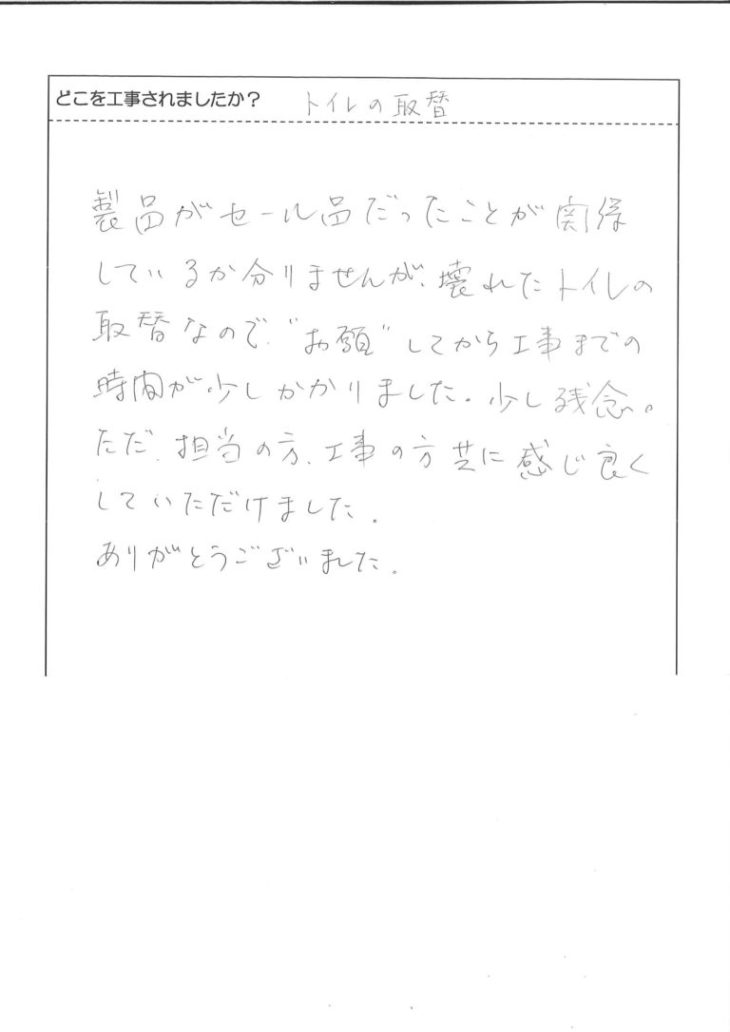 どこを工事されましたか? トイレの取替
製品がセール品だったことが関係
しているか分りませんが、壊れたトイレの
取替なので、"お願"してから工事までの
時間が少しかかりました。少し残念。
ただ、担当の方、工事の方共に感じ良く
していただけました。
ありがとうございました。